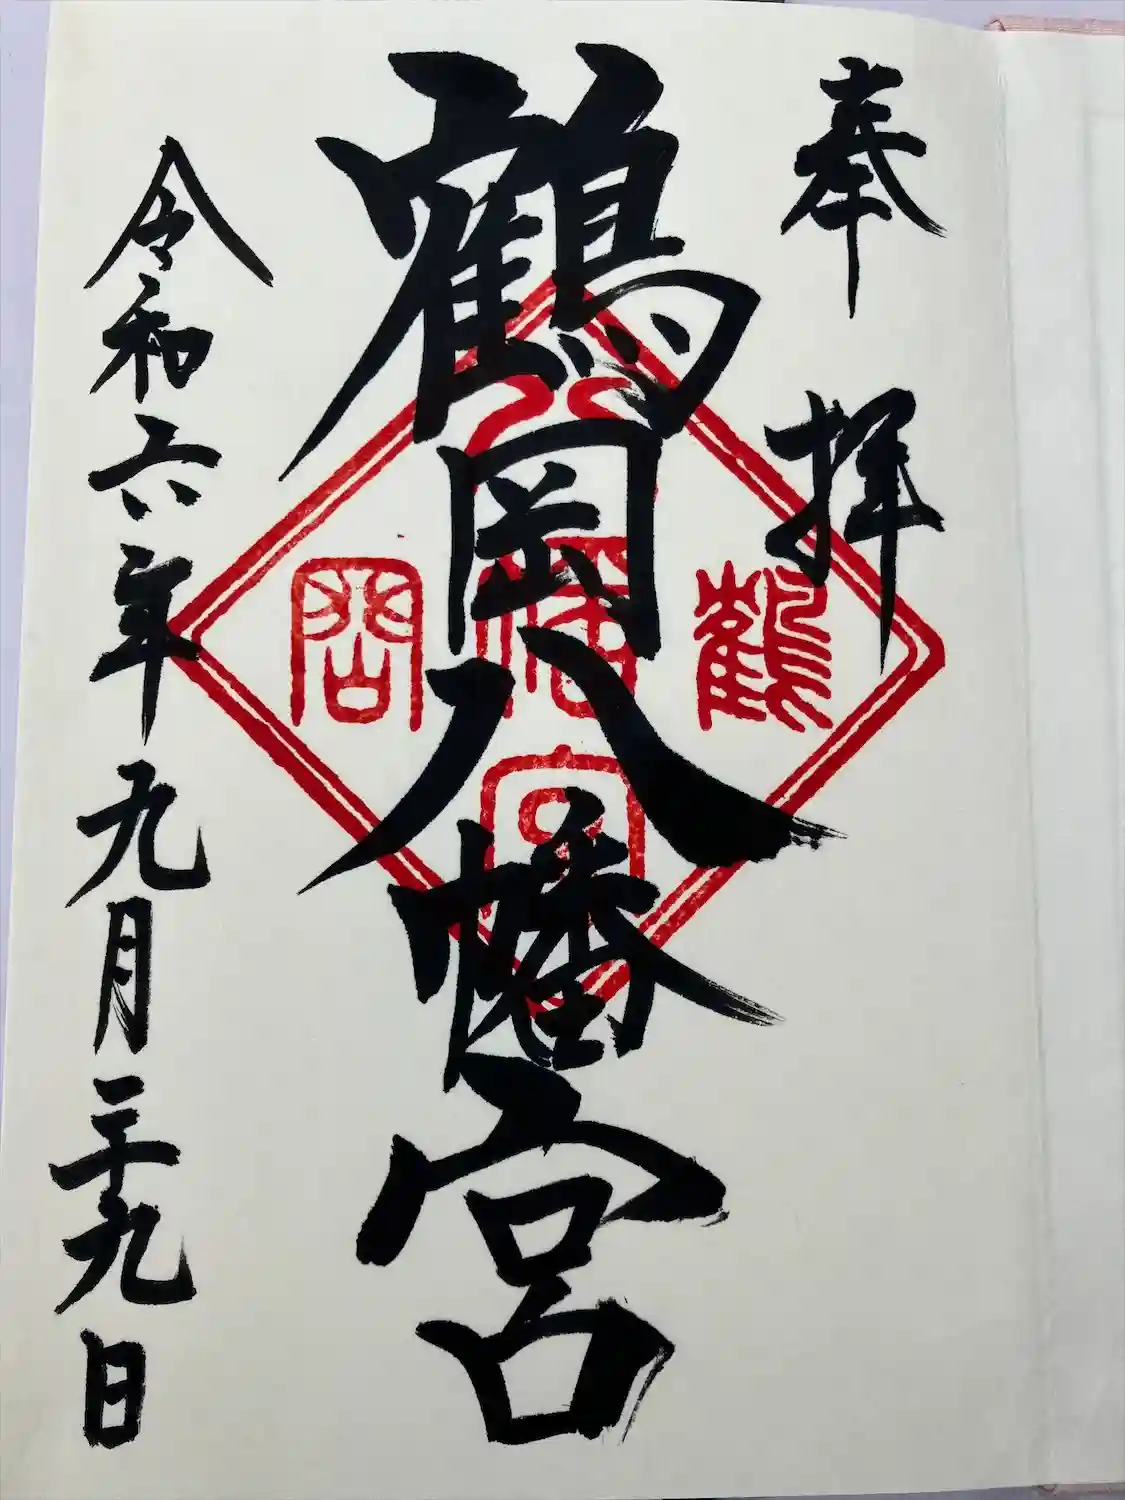 奉拝
鶴岡八幡宮
令和六年九月二十九日
鶴岡八幡宮